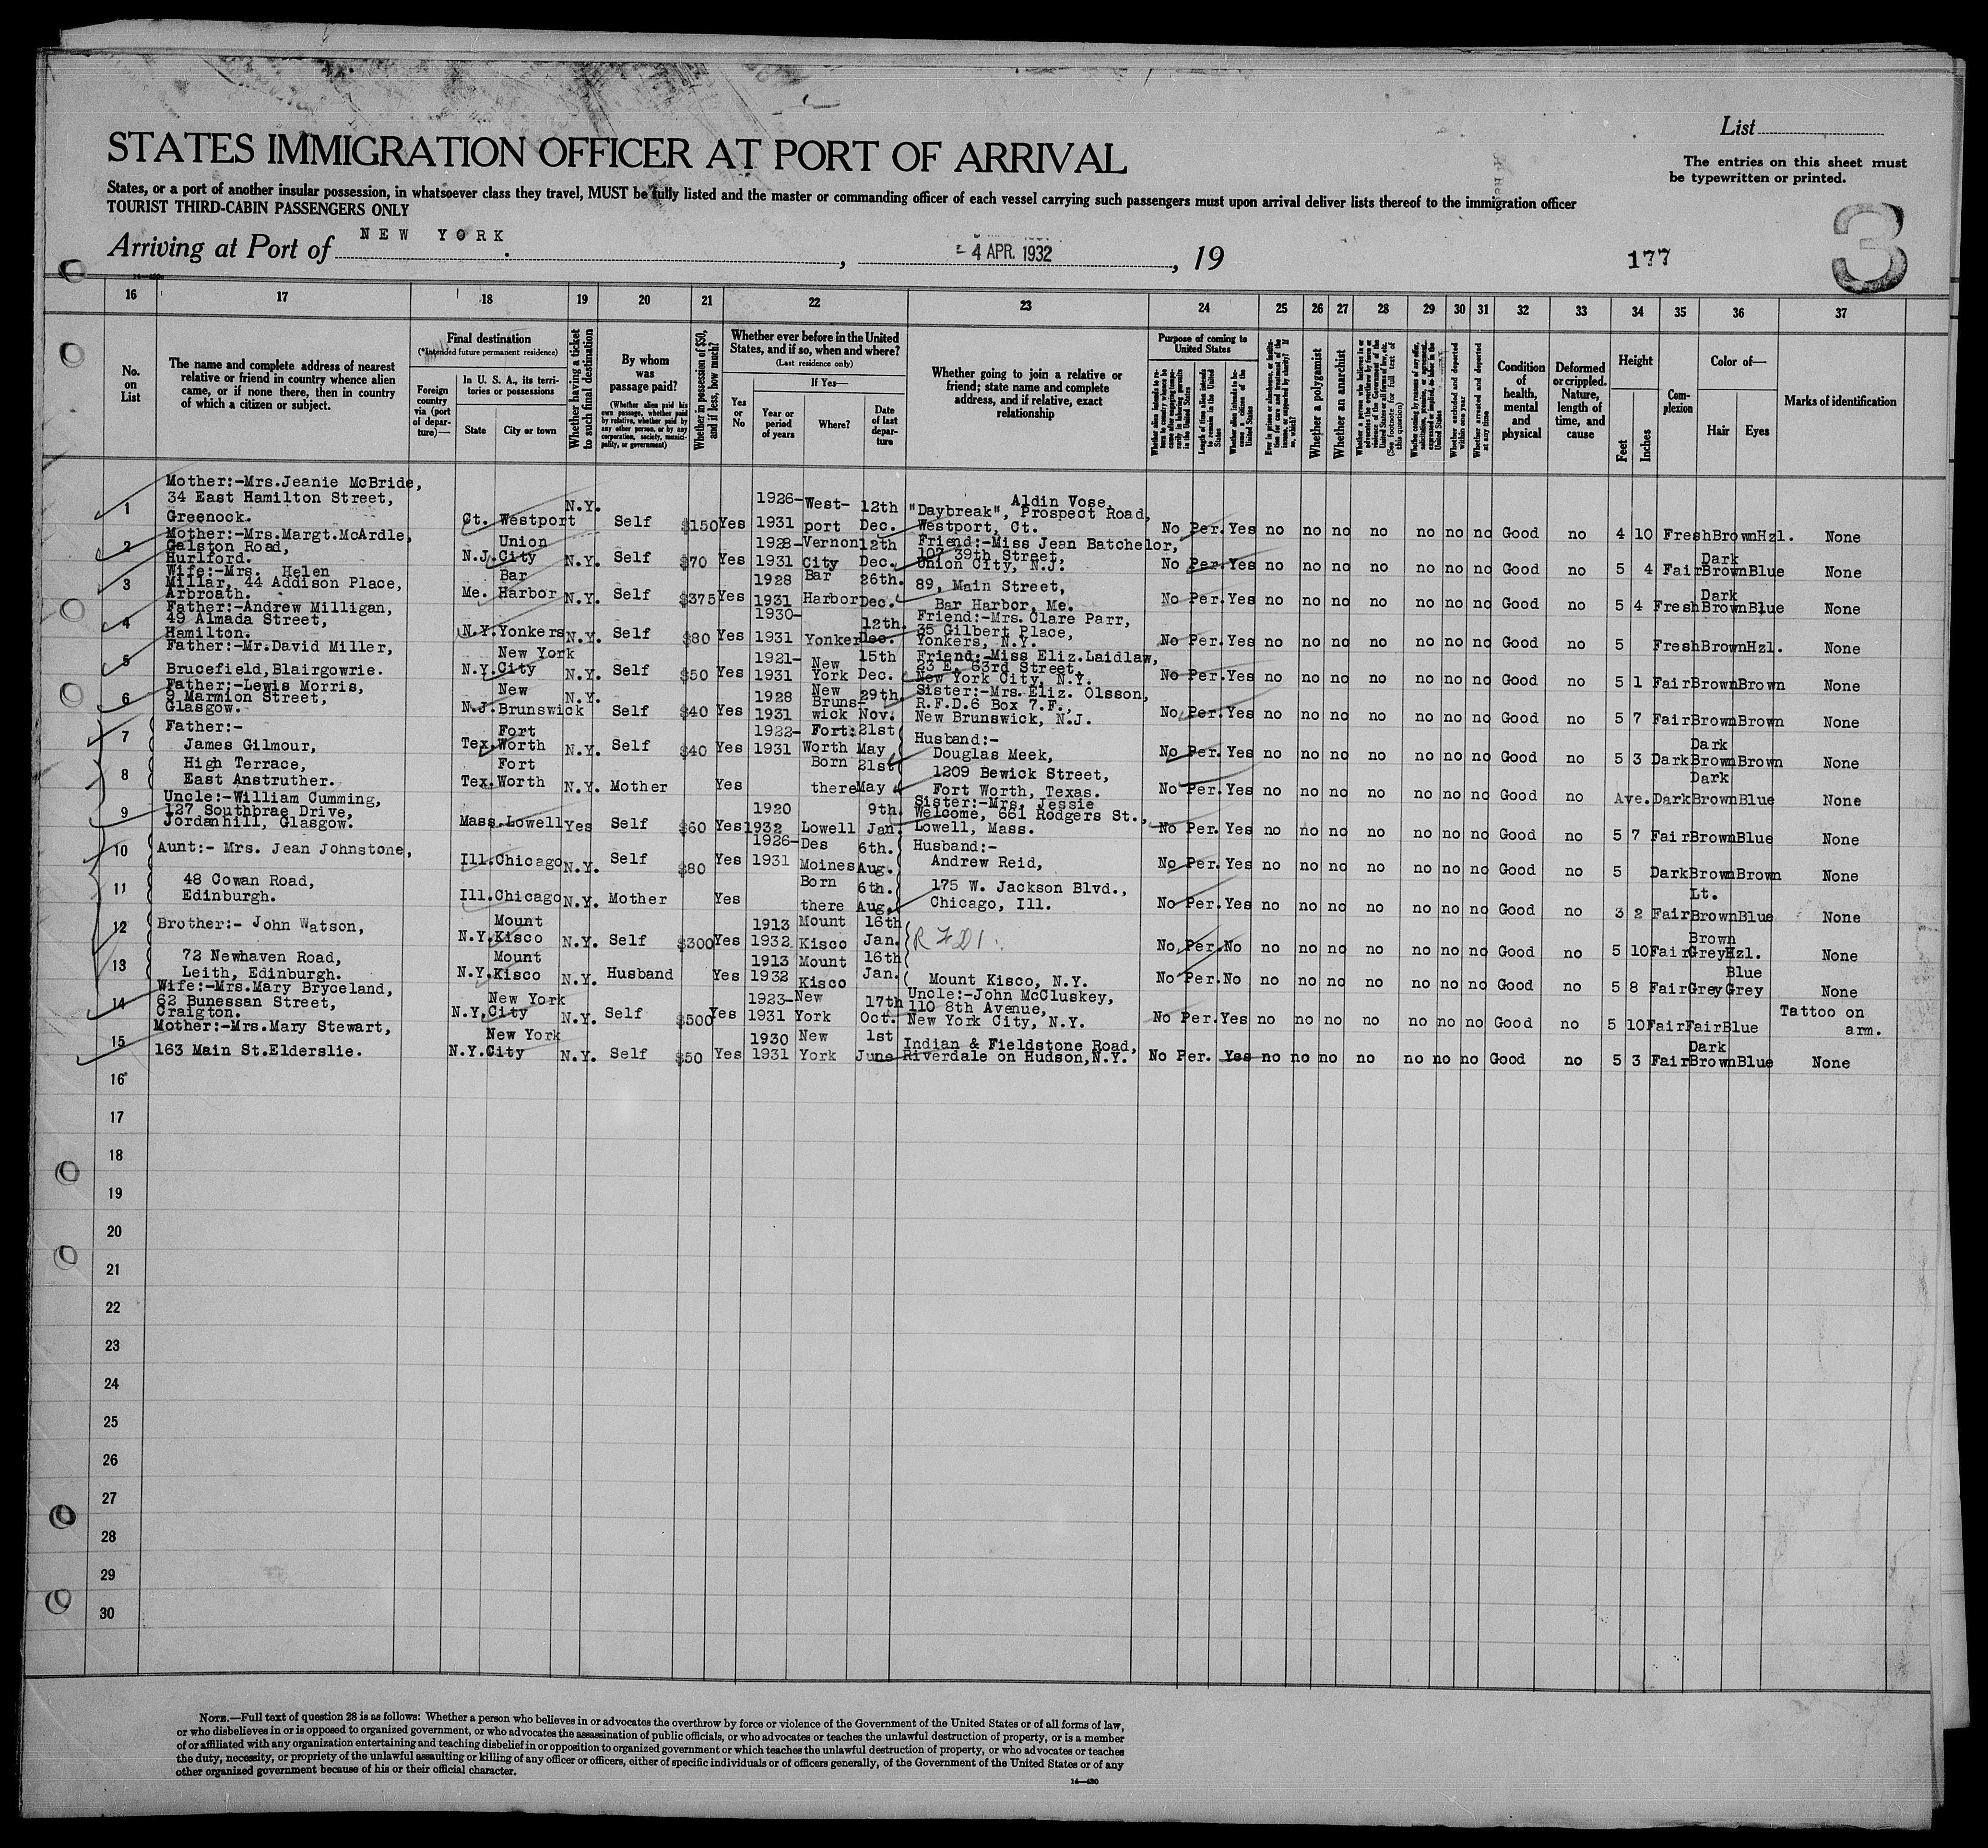 List
The entries on this sheet must
be typewritten or printed.
STATES IMMIGRATION OFFICER AT PORT OF ARRIVAL
States, or a port of another insular possession, in whatsoever class they travel, MUST be fully listed and the master or commanding officer of each vessel carrying such passengers must upon arrival deliver lists thereof to the immigration officer
TOURIST THIRD-CABIN PASSENGERS ONLY
Arriving at Port of NEW YORK. , 4 APR. 1932 , 19
177
3
16 17 18 19 20 21 22 23 24 25 26 27 28 29 30 31 32 33 34 35 36 37
No. on List
The name and complete address of nearest
relative or friend in country whence alien
came, or if none there, then in country
of which a citizen or subject.
Final destination
(*Intended future permanent residence)
Foreign country via (port of departure)—
In U. S. A., its territories or possessions
State
City or town
Whether having a ticket to such final destination
By whom was passage paid?
(Whether alien paid his own passage, whether paid by relative, whether paid by any other person, or by any corporation, society, municipality, or government)
Whether in possession of $50, and if less, how much?
Whether ever before in the United
States, and if so, when and where?
(Last residence only)
Yes or No
If Yes—
Year or period of years
Where?
Date of last departure
Whether going to join a relative or
friend; state name and complete
address, and if relative, exact
relationship
Purpose of coming to United States
Length of time alien intends to remain in the United States
Whether alien intends to become a citizen of the United States
Whether a polygamist
Whether an anarchist
Whether excluded and deported within one year
Whether arrested and deported at any time
Condition of health, mental and physical
Deformed or crippled. Nature, length of time, and cause
Height
Feet
Inches
Complexion
Color of—
Hair
Eyes
Marks of identification
1 Mother:-Mrs.Jeanie McBride, 34 East Hamilton Street, Greenock. Ct. Westport N.Y. Self $150 Yes 1926-1931 Westport 12th Dec. Aldin Vose, "Daybreak", Prospect Road, Westport, Ct. No Per. Yes no no no no no no no Good no 4 10 Fresh Brown Hzl. None
2 Mother:-Mrs.Margt.McArdle, Galston Road, Hurlford. N.J. Union City N.Y. Self $70 Yes 1928-1931 Vernon City 12th Dec. Friend:-Miss Jean Batchelor, 107 39th Street, Union City, N.J. No Per. Yes no no no no no no no Good no 5 4 Fair Dark Brown Blue None
3 Wife:-Mrs. Helen Millar, 44 Addison Place, Arbroath. Me. Bar Harbor N.Y. Self $375 Yes 1928 1931 Bar Harbor 26th. Dec. 89, Main Street, Bar Harbor, Me. No Per. Yes no no no no no no no Good no 5 4 Fresh Dark Brown Blue None
4 Father:-Andrew Milligan, 49 Almada Street, Hamilton. N.Y. Yonkers N.Y. Self $80 Yes 1930-1931 Yonker 12th. Dec. Friend:-Mrs. Clare Parr, 35 Gilbert Place, Yonkers, N.Y. No Per. Yes no no no no no no no Good no 5 Fresh Brown Hzl. None
5 Father:-Mr.David Miller, Brucefield,Blairgowrie. N.Y. New York City N.Y. Self $50 Yes 1921-1931 New York 15th Dec. Friend:-Miss Eliz.Laidlaw, 23 E. 63rd Street, New York City, N.Y. No Per. Yes no no no no no no no Good no 5 1 Fair Brown Brown None
6 Father:-Lewis Morris, 9 Marmion Street, Glasgow. N.J. New Brunswick N.Y. Self $40 Yes 1928 1931 New Brunswick 29th. Nov. Sister:-Mrs. Eliz. Olsson, R.F.D.6 Box 7.F., New Brunswick, N.J. No Per. Yes no no no no no no no Good no 5 7 Fair Brown Brown None
7 Father:- James Gilmour, Tex. Fort Worth N.Y. Self $40 Yes 1922-1931 Fort: Worth 21st May Husband:- Douglas Meek, No Per. Yes no no no no no no no Good no 5 3 Dark Dark Brown Brown None
8 High Terrace, East Anstruther. Tex. Fort Worth N.Y. Mother Yes Born there 21st May 1209 Bewick Street, Fort Worth, Texas. No Per. Yes no no no no no no no Good no Ave. Dark Dark Brown Blue None
9 Uncle:-William Cumming, 127 Southbrae Drive, Jordanhill, Glasgow. Mass. Lowell Yes Self $60 Yes 1920 1932 Lowell 9th. Jan. Sister:-Mrs. Jessie Welcome, 661 Rodgers St., Lowell, Mass. No Per. Yes no no no no no no no Good no 5 7 Fair Brown Blue None
10 Aunt:- Mrs. Jean Johnstone, Ill. Chicago N.Y. Self $80 Yes 1926-1931 Des Moines 6th. Aug. Husband:- Andrew Reid, No Per. Yes no no no no no no no Good no 5 Dark Brown Brown None
11 48 Cowan Road, Edinburgh. Ill. Chicago N.Y. Mother Yes Born there 6th. Aug. 175 W. Jackson Blvd., Chicago, Ill. No Per. Yes no no no no no no no Good no 3 2 Fair Lt. Brown Blue None
12 Brother:- John Watson, N.Y. Mount Kisco N.Y. Self $300 Yes 1913 1932 Mount Kisco 16th Jan. R F D 1. No Per. No no no no no no no no Good no 5 10 Fair Brown Grey Hzl. None
13 72 Newhaven Road, Leith, Edinburgh. N.Y. Mount Kisco N.Y. Husband Yes 1913 1932 Mount Kisco 16th Jan. Mount Kisco, N.Y. No Per. No no no no no no no no Good no 5 8 Fair Grey Blue Grey None
14 Wife:-Mrs.Mary Bryceland, 62 Bunessan Street, Craigton. N.Y. New York City N.Y. Self $500 Yes 1923-1931 New York 17th Oct. Uncle:-John McCluskey, 110 8th Avenue, New York City, N.Y. No Per. Yes no no no no no no no Good no 5 10 Fair Fair Blue Tattoo on arm.
15 Mother:-Mrs.Mary Stewart, 163 Main St.Elderslie. N.Y. New York City N.Y. Self $50 Yes 1930 1931 New York 1st June Indian & Fieldstone Road, Riverdale on Hudson,N.Y. No Per. Yes no no no no no no no Good no 5 3 Fair Dark Brown Blue None
16
17
18
19
20
21
22
23
24
25
26
27
28
29
30
NOTE.—Full text of question 28 is as follows: Whether a person who believes in or advocates the overthrow by force or violence of the Government of the United States or of all forms of law,
or who disbelieves in or is opposed to organized government, or who advocates the assassination of public officials, or who advocates or teaches the unlawful destruction of property, or is a member
of or affiliated with any organization entertaining and teaching disbelief in or opposition to organized government or which teaches the unlawful destruction of property, or who advocates or teaches
the duty, necessity, or propriety of the unlawful assaulting or killing of any officer or officers, either of specific individuals or of officers generally, of the Government of the United States or of any
other organized government because of his or their official character.
14—430